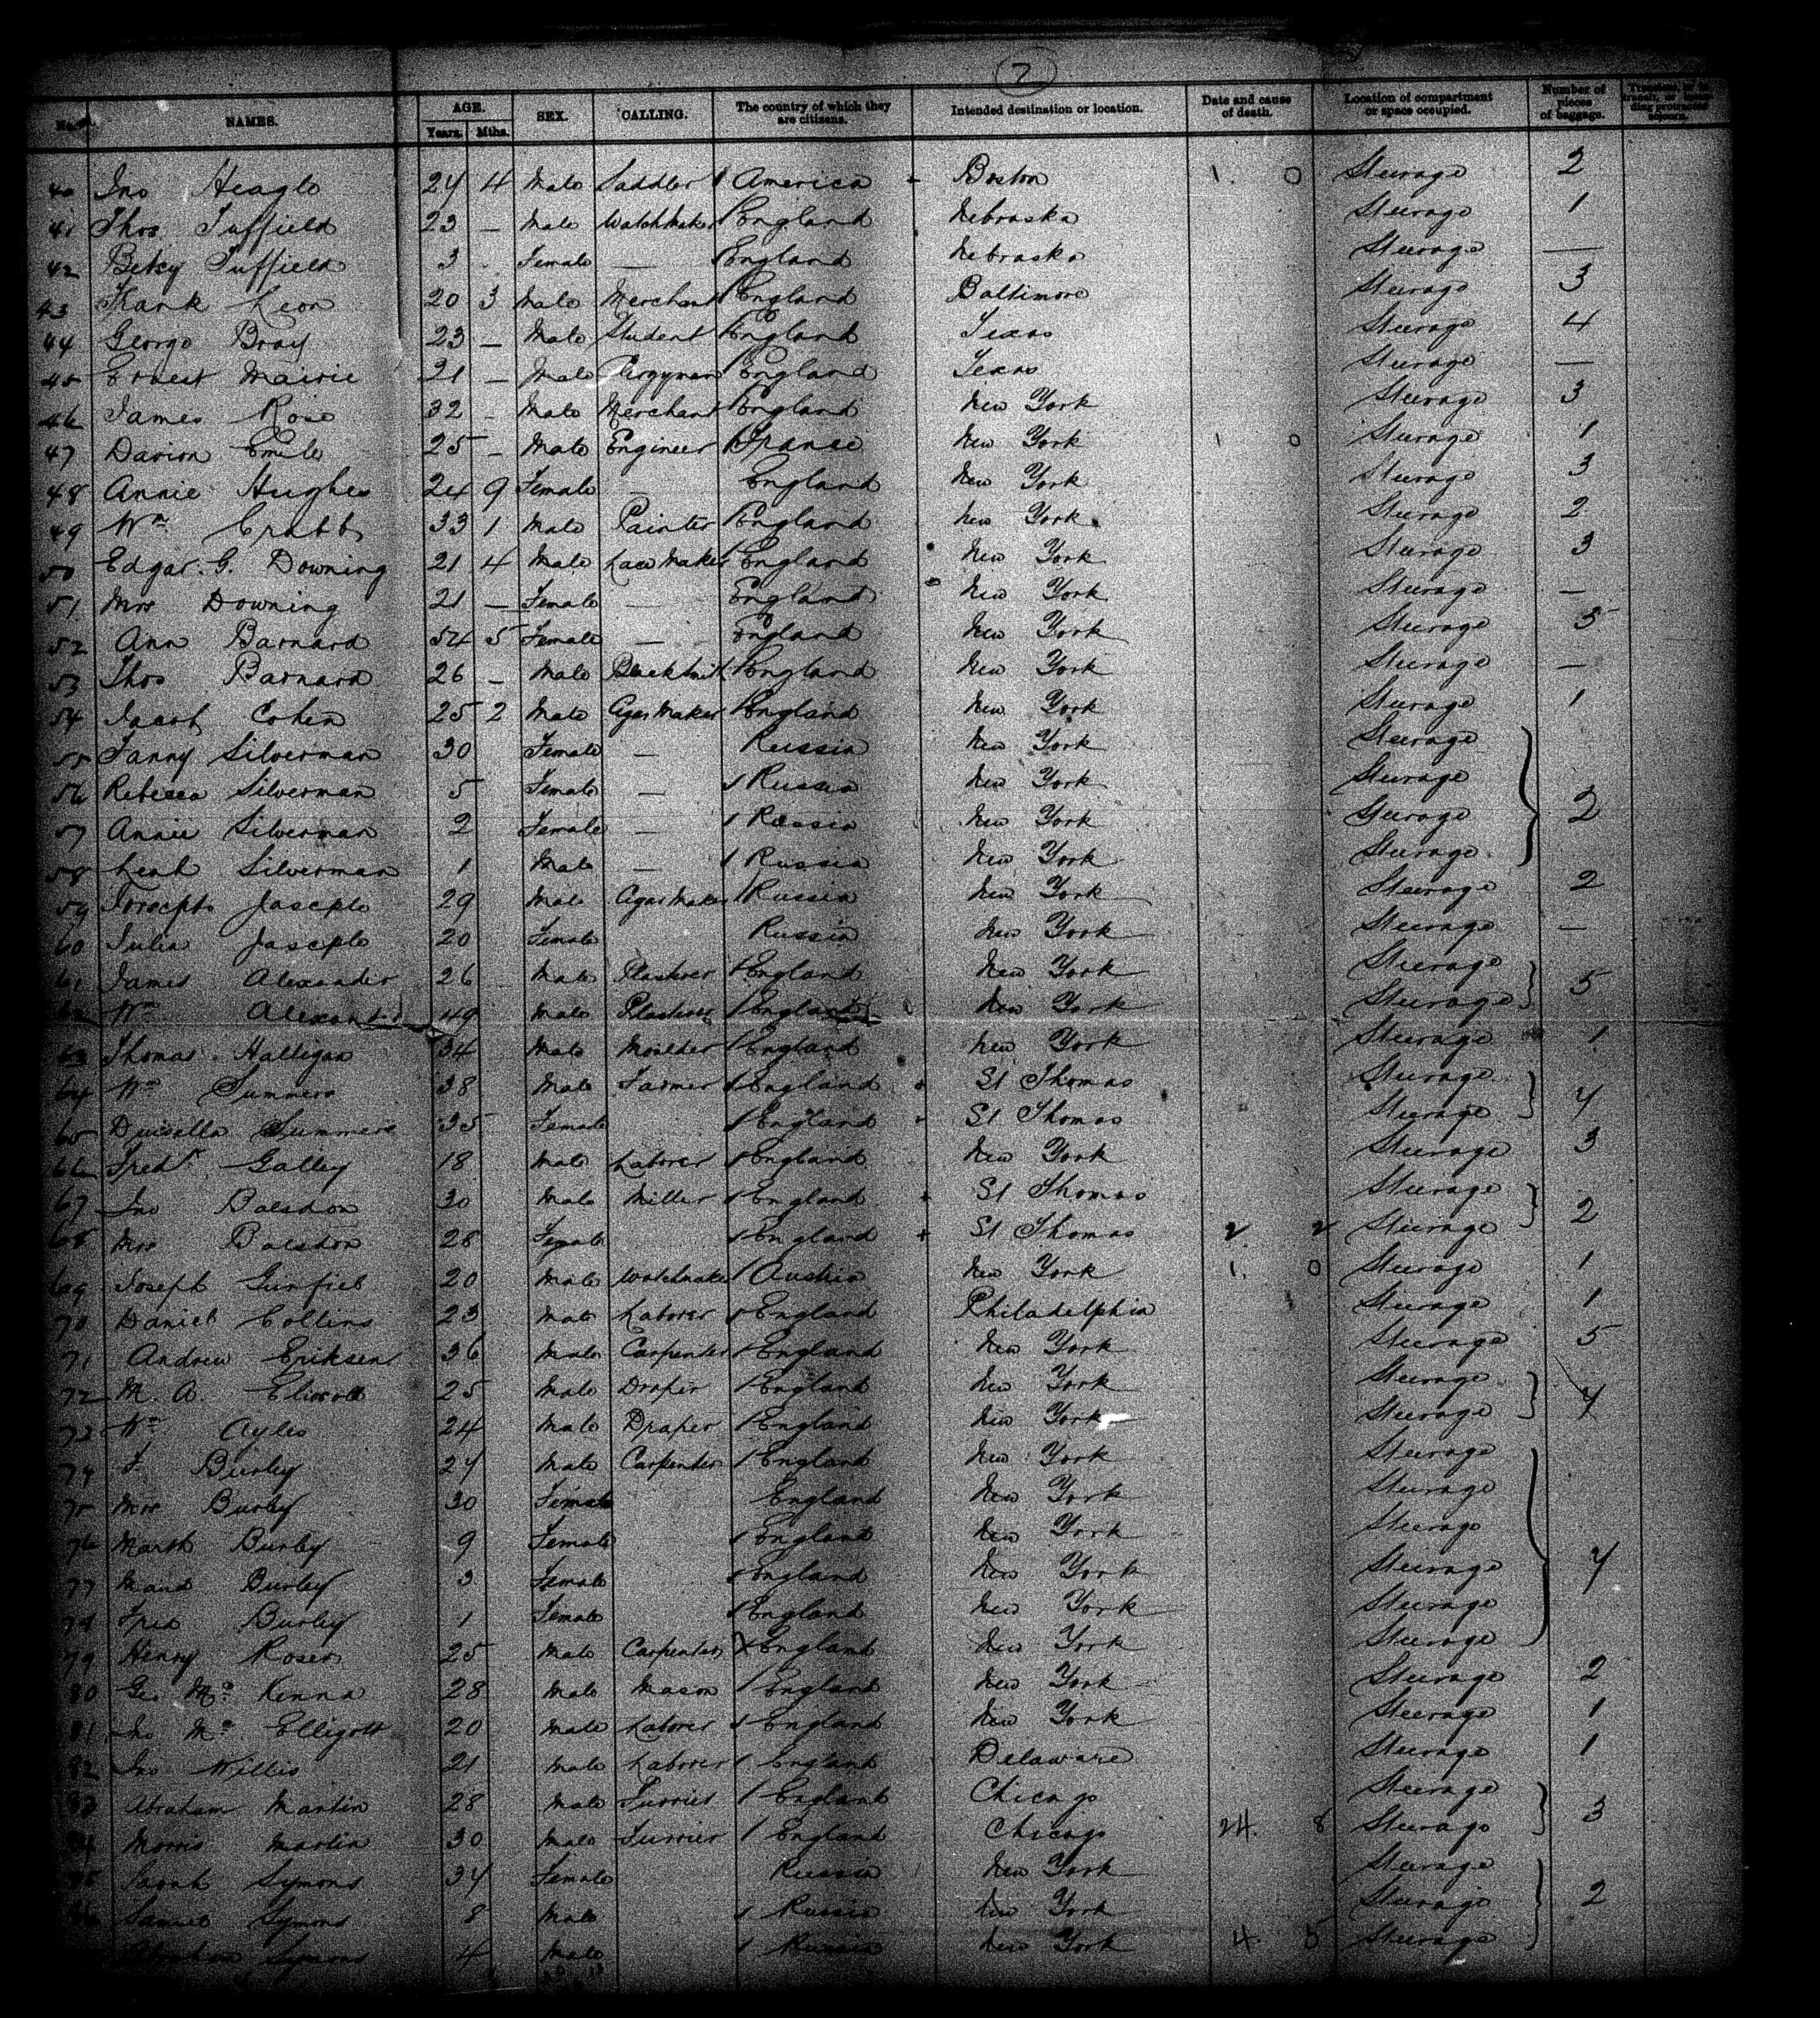 2
No. NAMES. AGE. Years. Mths. SEX. CALLING. The country of which they are citizens. Intended destination or location. Date and cause of death. Location of compartment or space occupied. Number of pieces of baggage.
40 Jno Heagle 24 4 Male Saddler America Boston 1. 0 Steerage 2
41 Thos Tuffield 23 — Male Watchmaker England Nebraska Steerage 1
42 Betsy Tuffield 3 Female — England Nebraska Steerage —
43 Frank Leon 20 3 Male Merchant England Baltimore Steerage 3
44 George Bray 23 — Male Student England Texas Steerage 4
45 Ernest Mairie 21 — Male Clergyman England Texas Steerage —
46 James Rose 32 — Male Merchant England New York Steerage 3
47 Darion Emile 25 — Male Engineer France New York 1 0 Steerage 1
48 Annie Hughes 24 9 Female — England New York Steerage 3
49 Wm Crabb 33 1 Male Painter England New York Steerage 2
50 Edgar. G. Downing 21 4 Male Lace Maker England New York Steerage 3
51 Mrs Downing 21 — Female — England New York Steerage —
52 Ann Barnard 54 5 Female — England New York Steerage 5
53 Thos Barnard 26 — Male Blacksmith England New York Steerage —
54 Jacob Cohen 25 2 Male Cigar Maker England New York Steerage 1
55 Fanny Silverman 30 Female — Russia New York Steerage
56 Rebecca Silverman 5 Female — Russia New York Steerage
57 Annie Silverman 2 Female — Russia New York Steerage 2
58 Leah Silverman 1 Male — Russia New York Steerage
59 Joseph Joseph 29 Male Cigar Maker Russia New York Steerage 2
60 Julia Joseph 20 Female Russia New York Steerage —
61 James Alexander 26 Male Plasterer England New York Steerage
62 Wm Alexander 49 Male Plasterer England New York Steerage 5
63 Thomas Halligan 34 Male Moulder England New York Steerage 1
64 Wm Summers 38 Male Farmer England St Thomas Steerage
65 Summers 35 Female England St Thomas Steerage 4
66 Fredk Galley 18 Male Laborer England New York Steerage 3
67 Jno Balsdon 30 Male Miller England St Thomas Steerage
68 Mrs Balsdon 28 Female England + St Thomas 2 2 Steerage 2
69 Joseph 20 Male Watchmaker Austria New York 1. 0 Steerage 1
70 Daniel Collins 23 Male Laborer England Philadelphia Steerage 1
71 Andrew Eriksen 36 Male Carpenter England New York Steerage 5
72 M. A. 25 Male Draper England New York Steerage
73 Wm Ayles 24 Male Draper England New York Steerage 4
74 F. Burley 27 Male Carpenter England New York Steerage
75 Mrs Burley 30 Female England New York Steerage
76 Marth Burley 9 Female England New York Steerage
77 Maud Burley 3 Female England New York Steerage 4
78 Fred Burley 1 Female England New York Steerage
79 Henry Roser 25 Male Carpenter England New York Steerage
80 Geo Mc Kenna 28 Male Mason England New York Steerage 2
81 Jno Mc Elligott 20 Male Laborer England New York Steerage 1
82 Jno Willis 21 Male Laborer England Delaware Steerage 1
83 Abraham Martin 28 Male Furrier England Chicago Steerage
84 Morris Martin 30 Male Furrier England Chicago 24. 8 Steerage 3
85 Sarah Symons 34 Female Russia New York Steerage
86 Samuel Symons 8 Male Russia New York Steerage 2
Abraham Symons 4 Male Russia New York 4. 5 Steerage